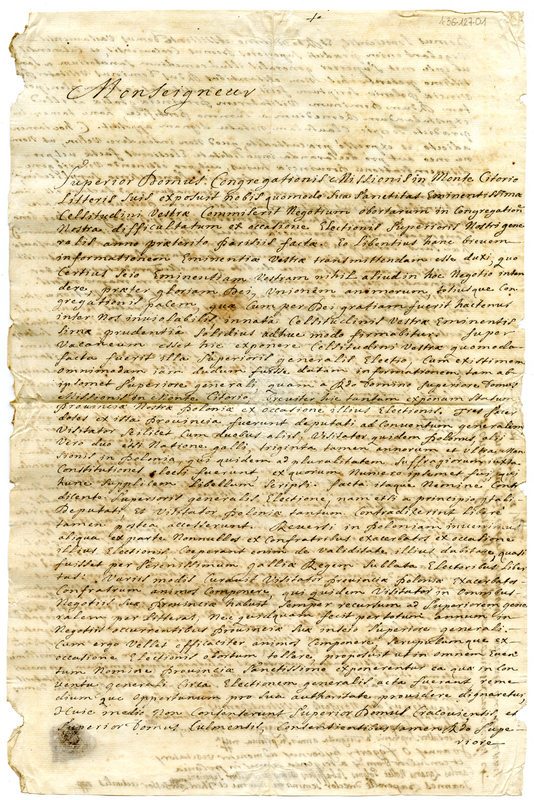 136.127.01
Monseigneur
Superior Domus Congregationis Missionis in Monte Citorio
litteris suis exposuit nobis quomodo Sua Sanctitas Eminentissimæ
Celsitudini Vestræ Commiserit Negotium obortarum in Congregatione
Nostra difficultatum ex occasione Electionis Superioris Nostri gene
ralis anno præterito Parisiis factæ. Eo libentius hanc brevem
informationem Eminentiæ Vestræ transmittendam esse duxi, quo
Certius scio Eminentiam Vestram nihil aliud in hoc Negotio inten
dere, præter gloriam Dei, Unionem animorum, totiusque con
gregationis pacem, quæ cum per Dei gratiam fuerit hactenus
inter Nos inviolabilis, Celsitudinis Vestræ Eminentis
sima prudentia solidius adhuc modo firmabitur. Super
Vacaneum esset hic exponere Celsitudini Vestræ quomodo
facta fuerit illa Superioris generalis Electio, Cum existimem
omnimodam iam dudum fuisse datam informationem tam ab
ipsomet Superiore generali quam a Rdo Domino Superiore Domus
Missionis in Monte Citorio, breviter hic tantum exponam statum
Provinciæ Nostræ Poloniæ ex occasione illius Electionis. Tres sacer
dotes ex illa Provincia fuerunt deputati ad Conventum generalem
Visitator scilicet Cum duobus aliis, Visitator quidem Polonus, alii
Vero duo etsi Natione galli, triginta tamen annorum et ultra Mis
sionis in Polonia, qui quidem ad pluralitatem suffragiorum iuxta
Constitutiones electi fuerunt, ex quorum Numero ipsemet sum qui
hunc supplicem libellum scripsi. facta itaque Nemine Contra
dicente Superioris generalis Electione, nam etsi a principio
Deputati et Visitator Poloniæ tantum Contradixerint
tamen postea accesserunt. Reversi in Poloniam invenimus
aliqua ex parte Nonnullos ex Confratribus exacerbatos ex occasione
illius Electionis. Cœperant enim de Validitate illius dubitare, quasi
fuisset per Serenissimum galliæ Regem sublata Electoribus liber
tas. Variis modis Curavit Visitator Provinciæ Poloniæ exacerbatos
Confratrum animos Componere, qui quidem Visitator in omnibus
Negotiis suæ Provinciæ habuit semper recursum ad Superiorem gene
ralem per litteras, Nec quidquam fecit per totum annum in
Negotiis occurrentibus Provinciæ suæ inscio Superiore generali.
Cum ergo Vellet efficaciter animos Componere scrupulumque ex
occasione Electionis obortum tollere, proposuit ut in omnem Even
tum Nomine Provinciæ Sanctissimo exponerentur ea quæ in Con
Ventu generali Circa Electionem generalis acta fuerant reme
diumque opportunum pro sua authoritate providere dignaretur
Huic medio Non Consenserunt Superior Domus Cracoviensis, et
Superior Domus Culmensis, Consentientibus tamen Rdo Supe-
riore